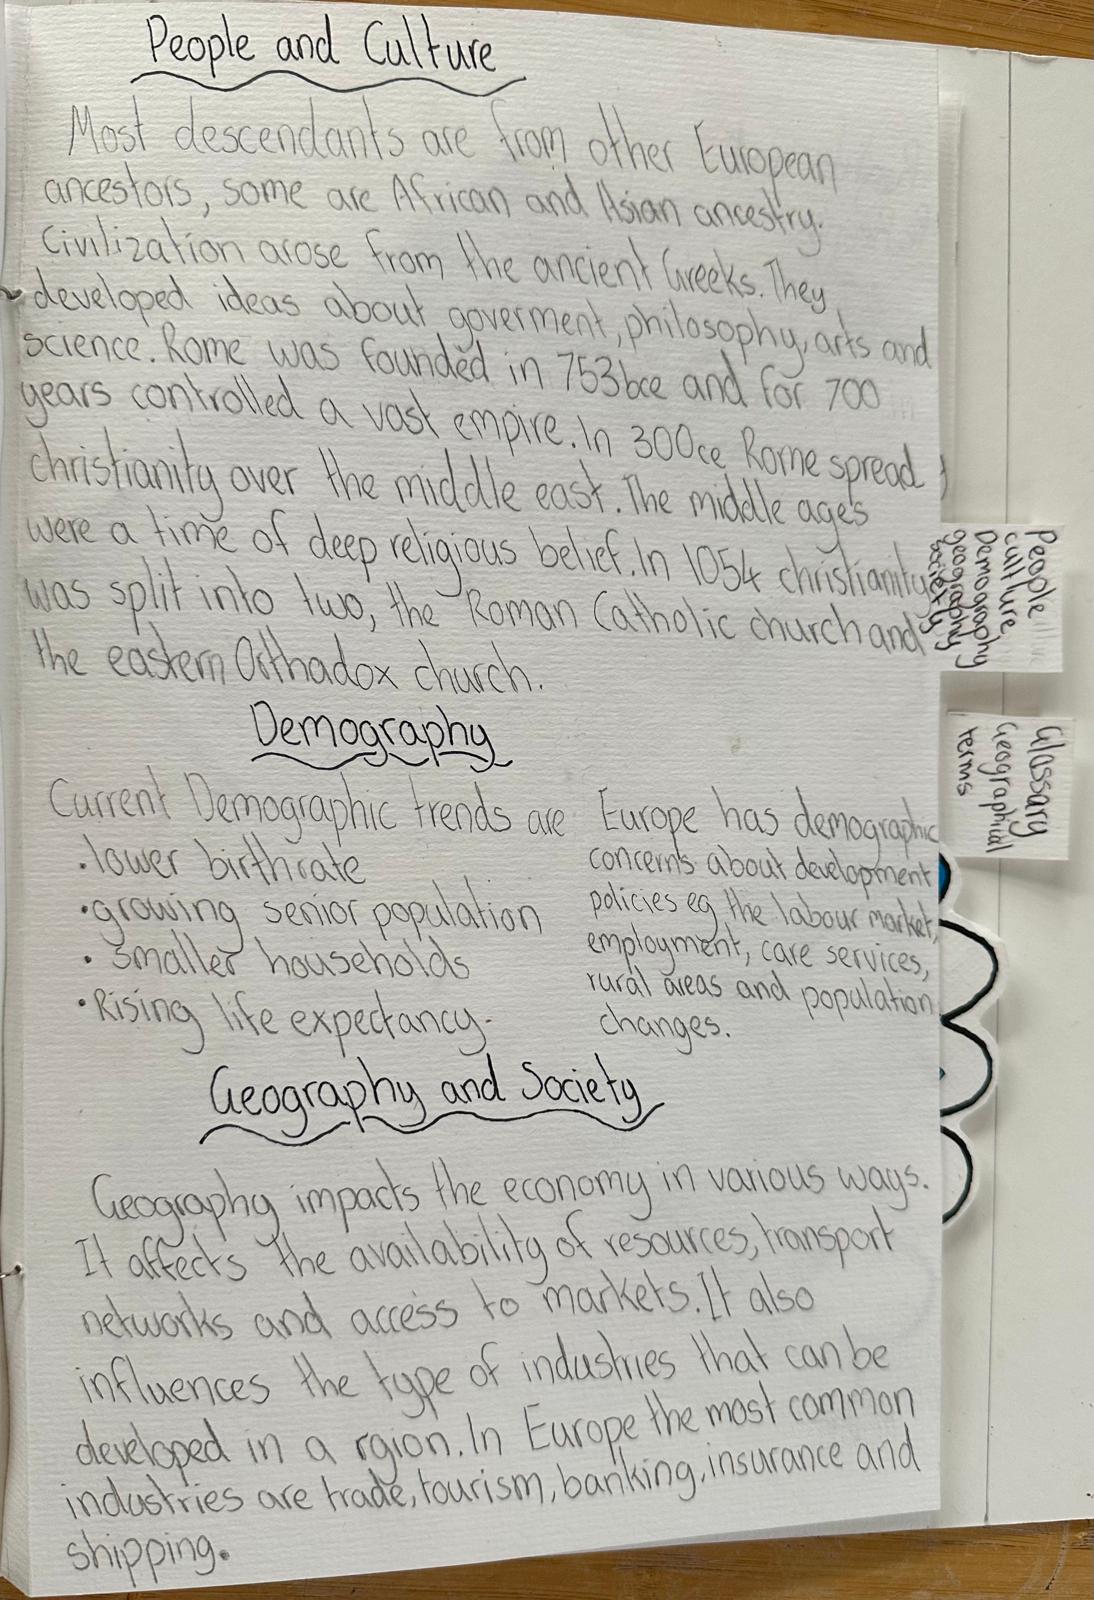 People and Culture
Most descendants are from other European
ancestors, some are African and Asian ancestry.
Civilization arose from the ancient Greeks. They
developed ideas about goverment, philosophy, arts and
science. Rome was founded in 753bce and for 700
years controlled a vast empire. In 300ce Rome spread
christianity over the middle east. The middle ages
were a time of deep religious belief. In 1054 christianity
was split into two, the Roman Catholic church and
the eastern Orthadox church.
Demography
Current Demographic trends are
• lower birthrate
• growing senior population
• smaller households
• Rising life expectancy.
Europe has demographic
concerns about development
policies eg the labour market,
employment, care services,
rural areas and population
changes.
Geography and Society
Geography impacts the economy in various ways.
It affects the availability of resources, transport
networks and access to markets. It also
influences the type of industries that can be
developed in a rgion. In Europe the most common
industries are trade, tourism, banking, insurance and
shipping.
People
culture,
Demography
geography
society
Glossary
Geographical
terms